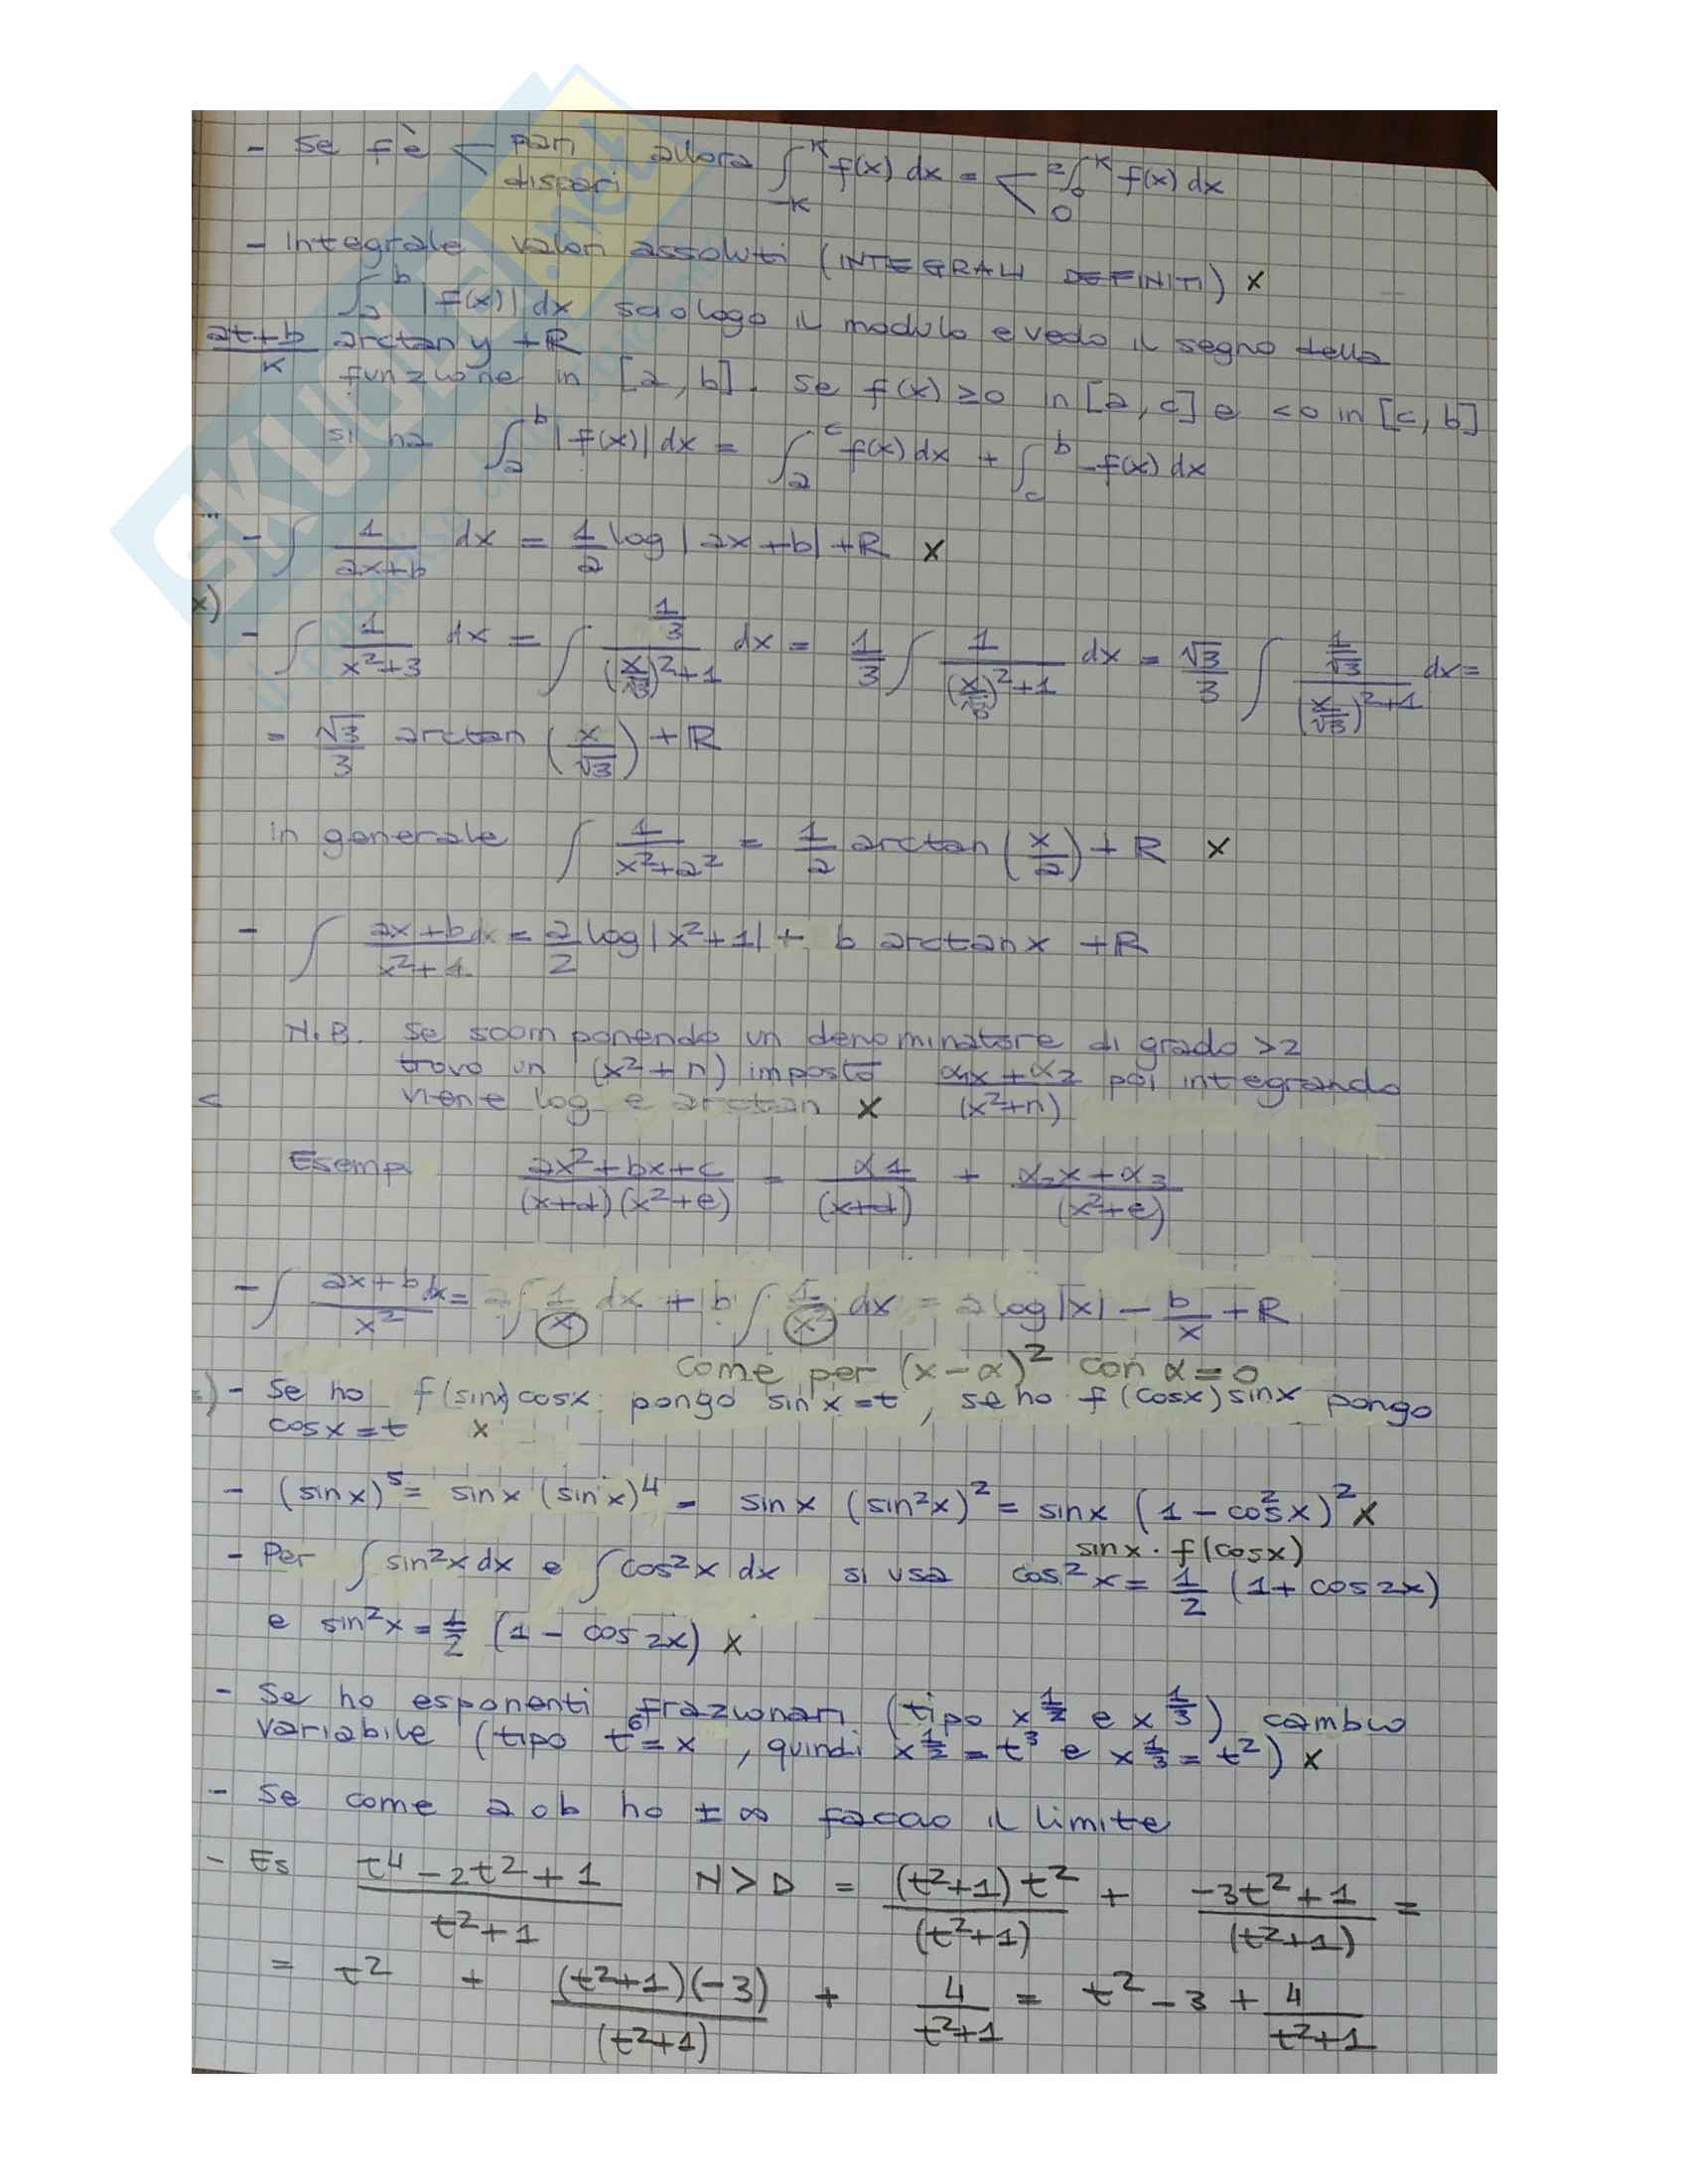 - Se f è < pari allora ∫_{-K}^{K} f(x) dx = < 2∫_0^K f(x) dx
dispari 0
- Integrale valori assoluti (INTEGRALI DEFINITI) x
∫_a^b |f(x)| dx sciolgo il modulo e vedo il segno della
at+b/K arctan y + R
funzione in [a, b]. Se f(x) ≥ 0 in [a, c] e < 0 in [c, b]
si ha ∫_a^b |f(x)| dx = ∫_a^c f(x) dx + ∫_c^b -f(x) dx
...
- ∫ 1/(ax+b) dx = 1/a log |ax+b| + R x
x)
- ∫ 1/(x²+3) dx = ∫ (1/3)/((x/√3)²+1) dx = 1/3 ∫ 1/((x/√3)²+1) dx = √3/3 ∫ (1/√3)/((x/√3)²+1) dx =
= √3/3 arctan (x/√3) + R
in generale ∫ 1/(x²+a²) = 1/a arctan (x/a) + R x
- ∫ (ax+b)/(x²+1) dx = a/2 log |x²+1| + b arctan x + R
N.B. Se scomponendo un denominatore di grado >2
trovo un (x²+n) imposto (α1x+α2)/(x²+n) poi integrando
viene log e arctan x
<
Esemp (ax²+bx+c)/((x+d)(x²+e)) = α1/(x+d) + (α2x+α3)/(x²+e)
- ∫ (ax+b)/x² dx = a∫ 1/x dx + b∫ 1/x² dx = a log|x| - b/x + R
come per (x-α)² con α=0
- Se ho f(sinx)cosx pongo sin x=t, se ho f(cosx)sinx pongo
cosx=t x
- (sinx)⁵ = sinx (sinx)⁴ = sinx (sin²x)² = sinx (1-cos²x)² x
sinx · f(cosx)
- Per ∫ sin²x dx e ∫ cos²x dx si usa cos²x = 1/2 (1+cos2x)
e sin²x = 1/2 (1-cos2x) x
- Se ho esponenti frazionari (tipo x^{1/2} e x^{1/3}) cambio
variabile (tipo t⁶=x, quindi x^{1/2}=t³ e x^{1/3}=t²) x
- Se come a o b ho ±∞ faccio il limite
- Es (t⁴-2t²+1)/(t²+1) N>D = ((t²+1)t²)/(t²+1) + (-3t²+1)/(t²+1) =
= t² + ((t²+1)(-3))/(t²+1) + 4/(t²+1) = t²-3 + 4/(t²+1)
SKUOLA.net